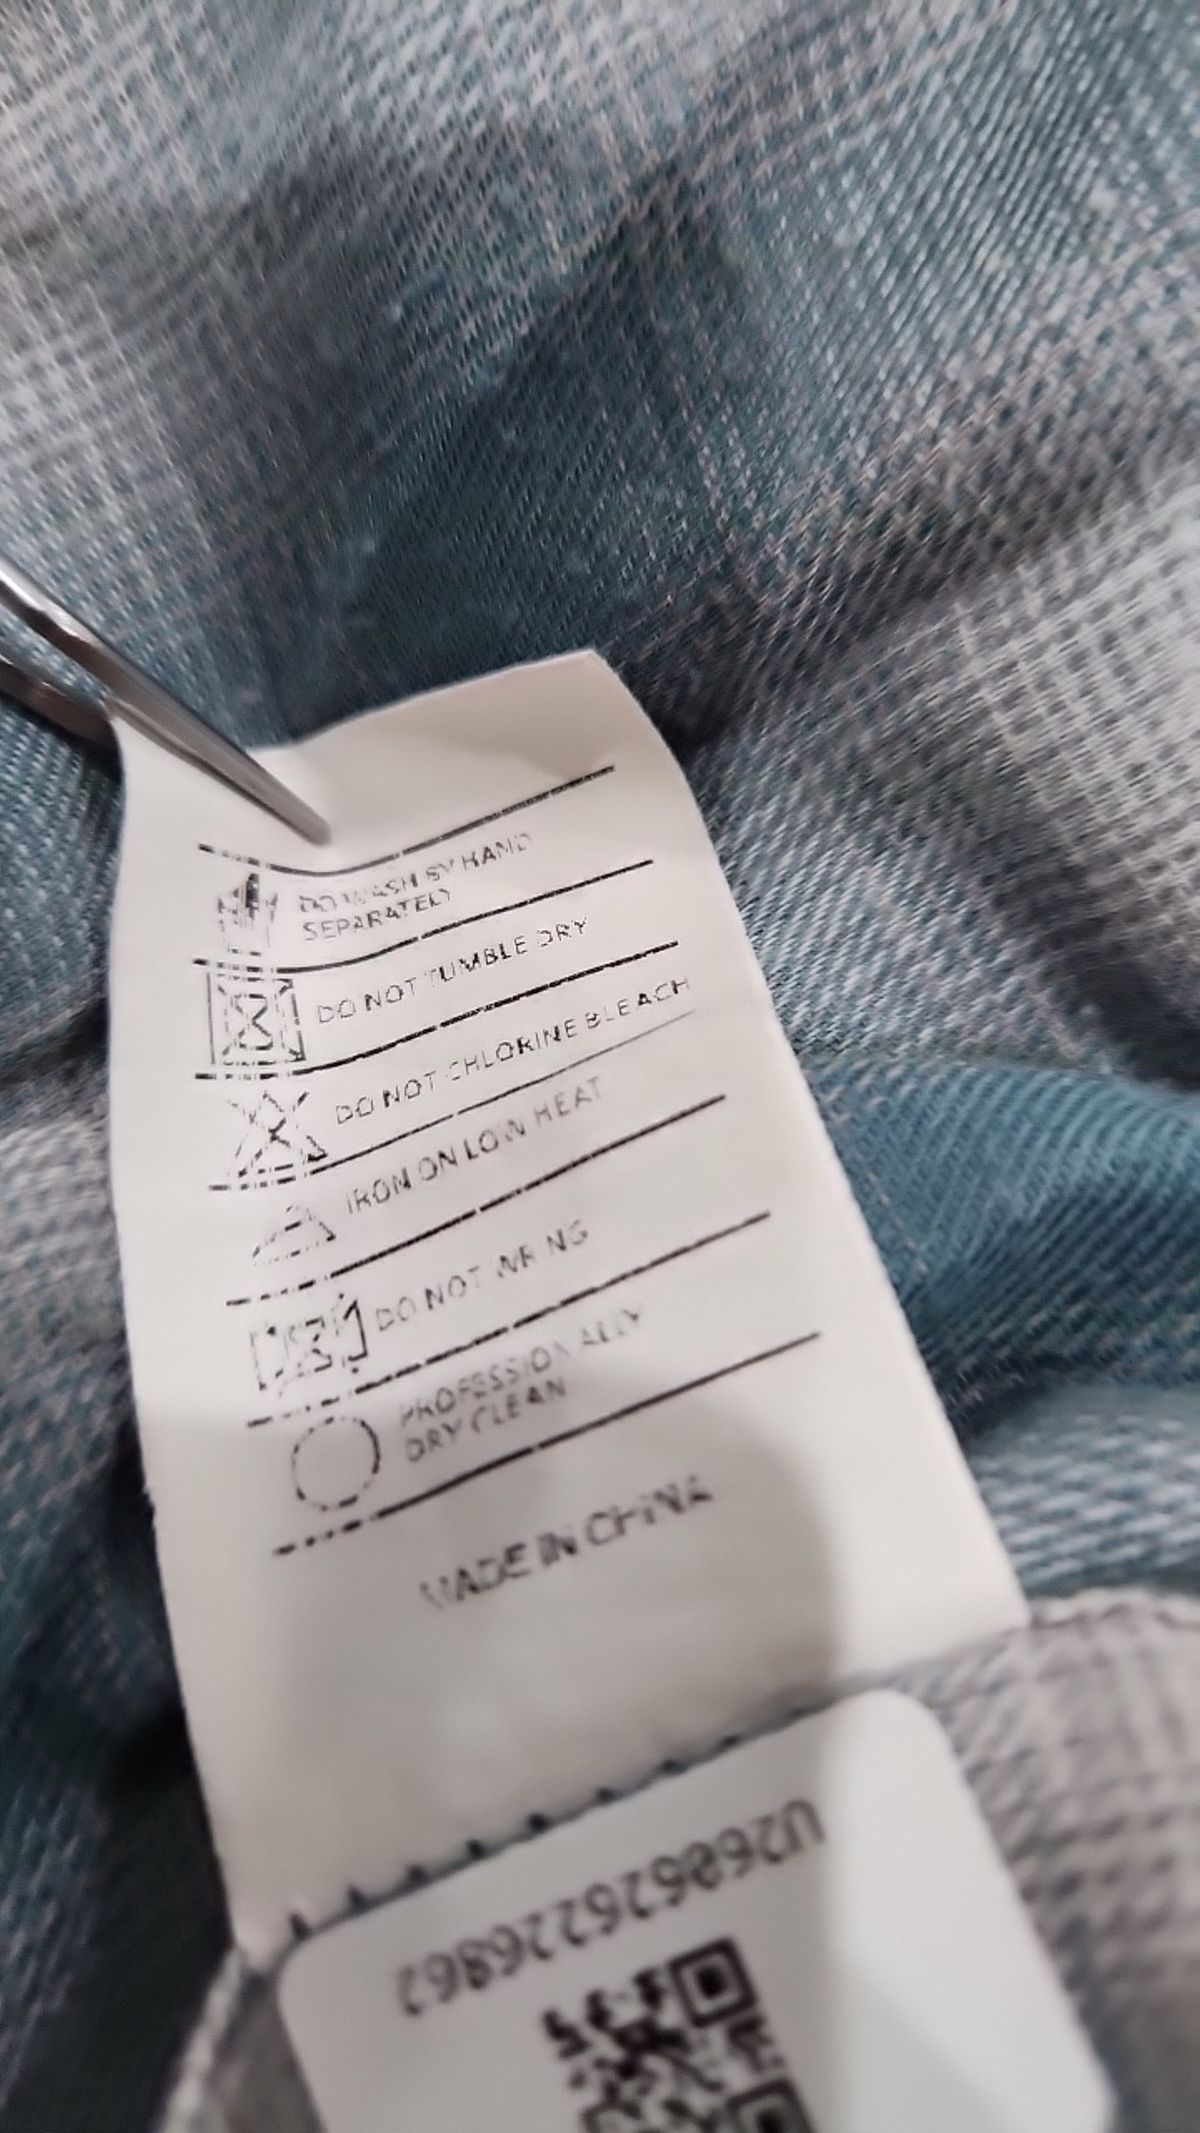 DO WASH BY HAND
SEPARATELY
DO NOT TUMBLE DRY
DO NOT CHLORINE BLEACH
IRON ON LOW HEAT
DO NOT WRING
PROFESSIONALLY
DRY CLEAN
MADE IN CHINA